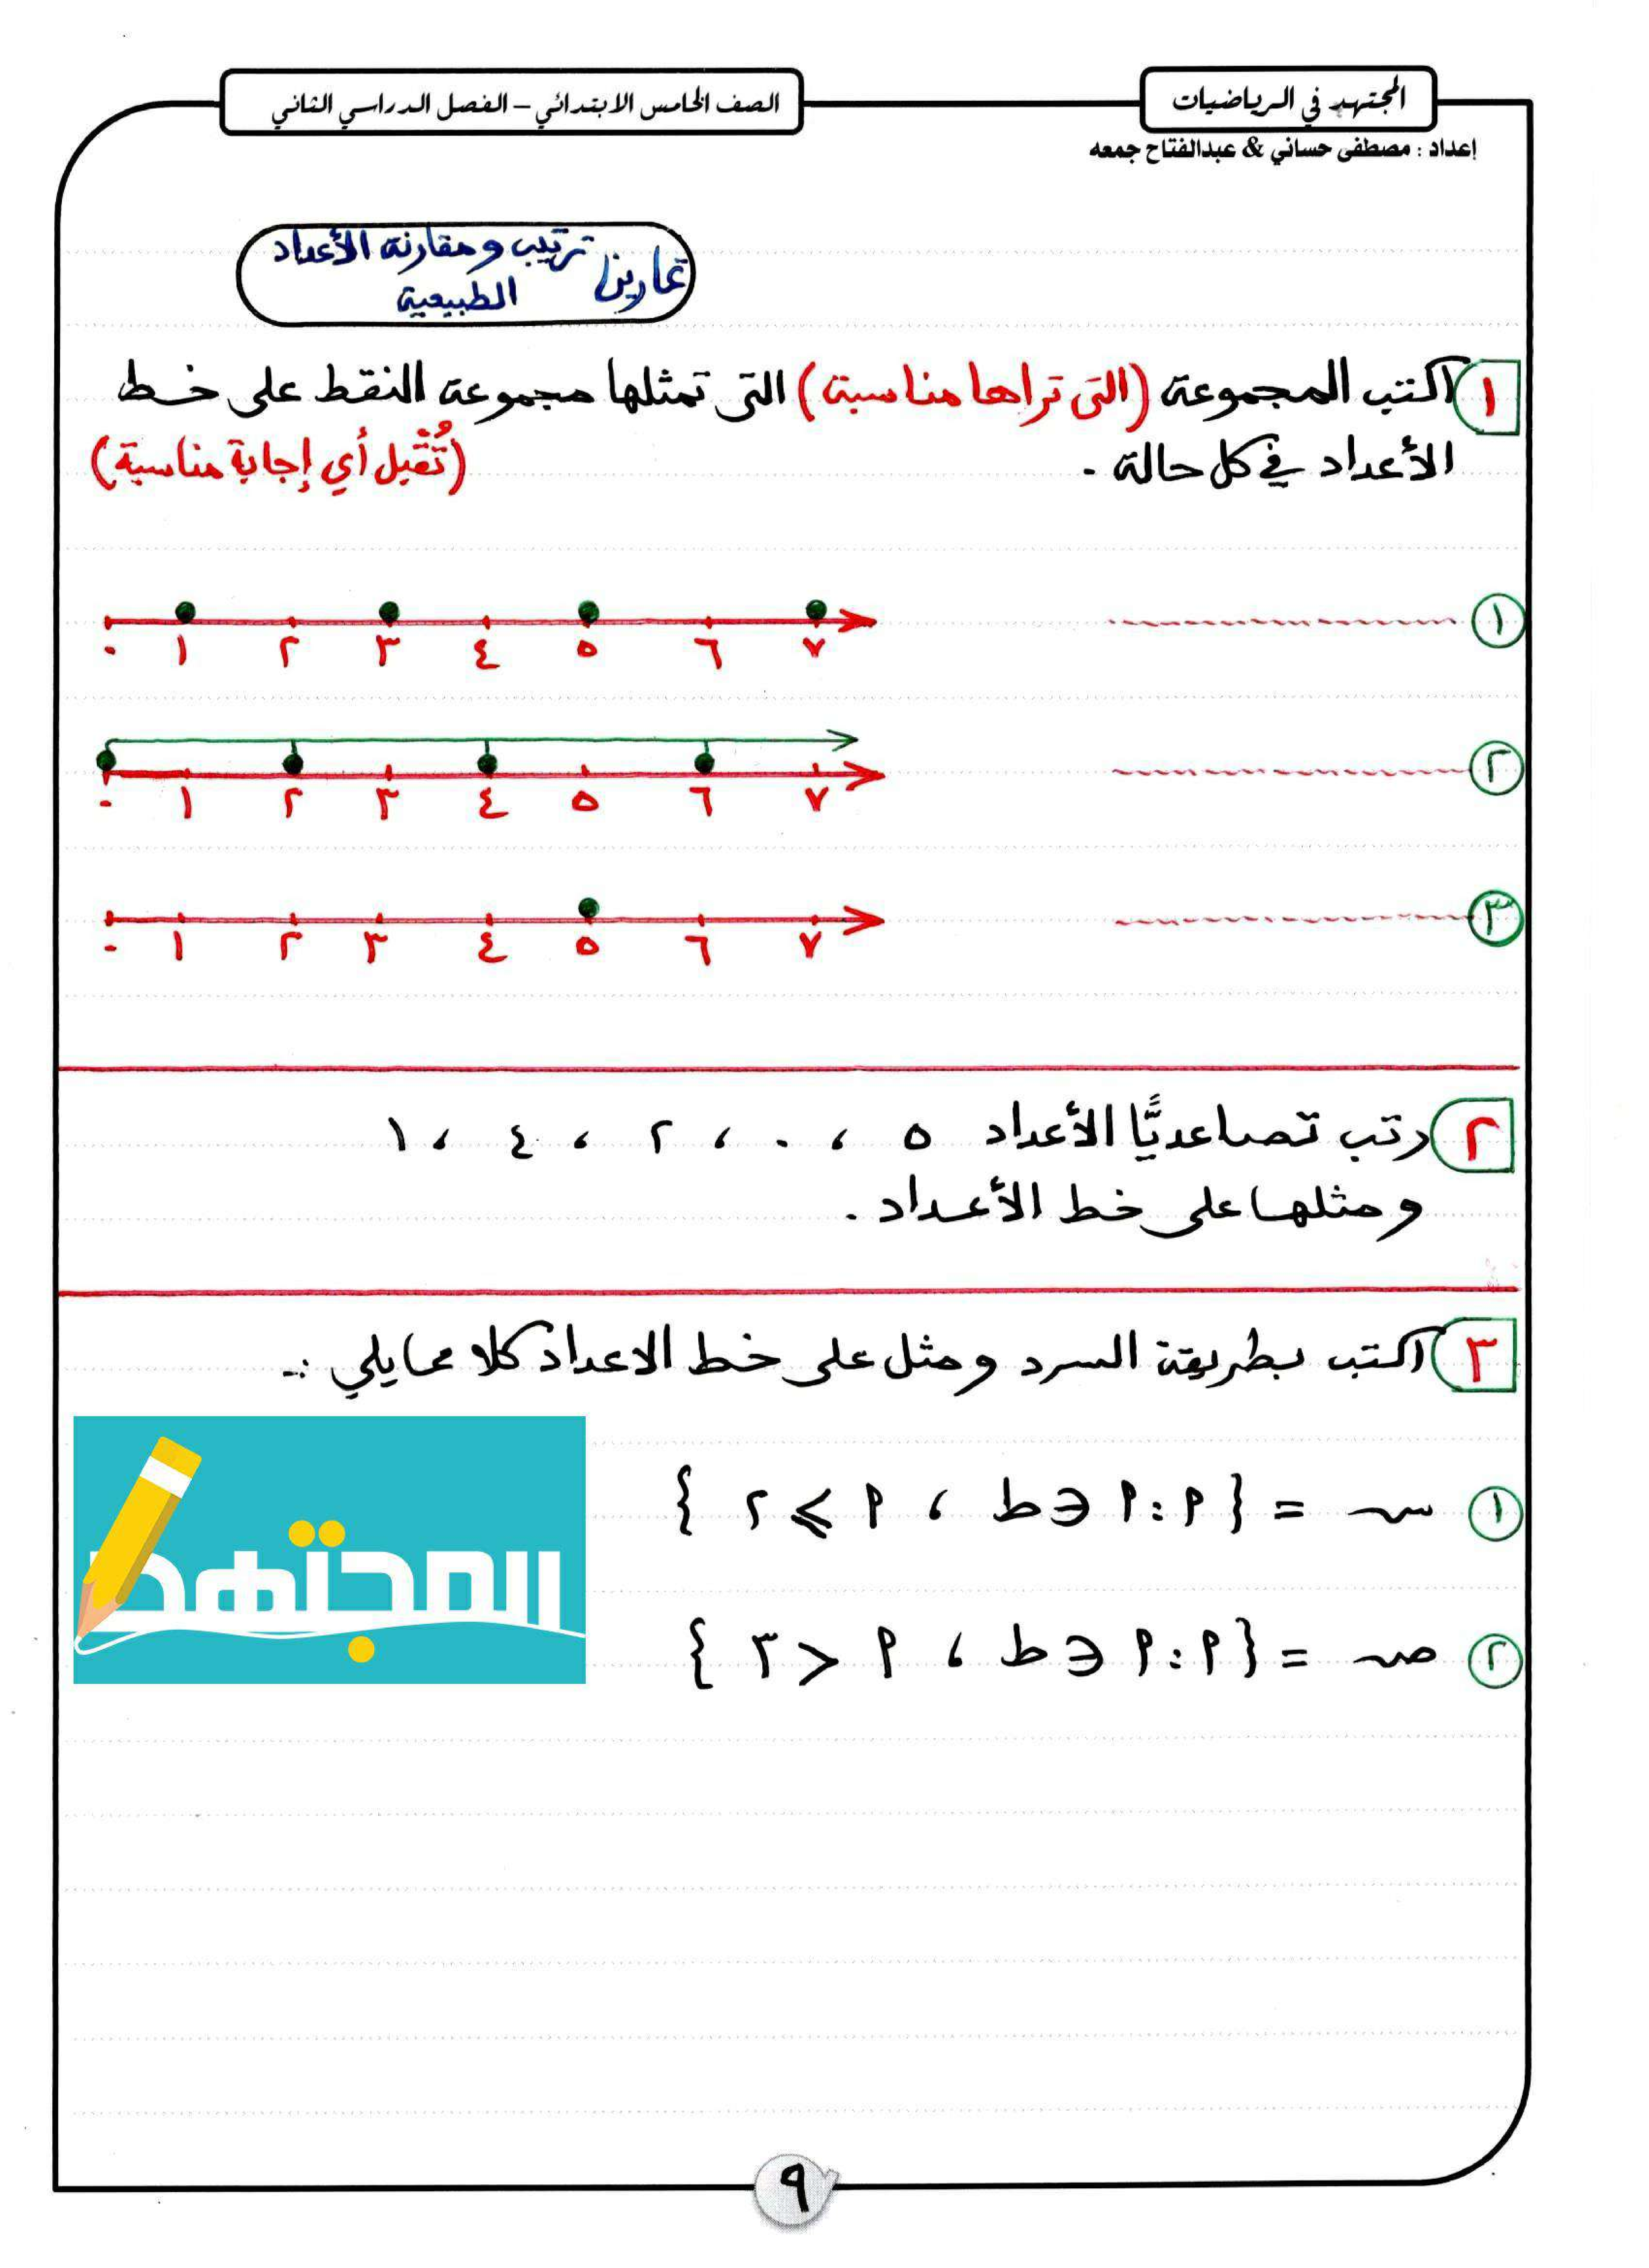 المجتهد في الرياضيات
الصف الخامس الابتدائي – الفصل الدراسي الثاني
إعداد : مصطفى حساني & عبدالفتاح جمعه
تمارين ترتيب ومقارنة الأعداد
الطبيعية
١ اكتب المجموعة (التى تراها مناسبة) التى تمثلها مجموعة النقط على خط
الأعداد في كل حالة .
(تُقْبل أي إجابة مناسبة)
١
٠ ١ ٢ ٣ ٤ ٥ ٦ ٧
٢
٠ ١ ٢ ٣ ٤ ٥ ٦ ٧
٣
٠ ١ ٢ ٣ ٤ ٥ ٦ ٧
٢ رتب تصاعديًّا الأعداد ٥ ، ٠ ، ٢ ، ٤ ، ١
ومثلها على خط الأعداد .
٣ اكتب بطريقة السرد ومثل على خط الاعداد كلا مما يلي :-
١ س = { أ : أ ∈ ط ، أ ⩽ ٢ }
المجتهد
٢ ص = { أ : أ ∈ ط ، أ > ٣ }
٩